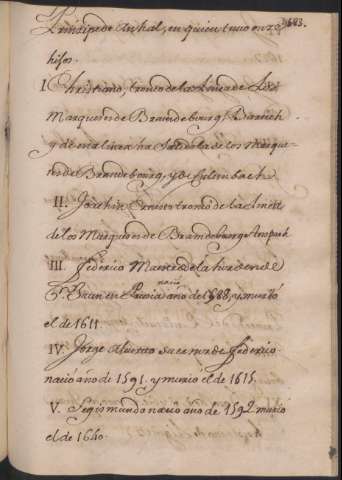 Principe de Anhal, en quien tuvo onze
hijos.
I. Christiano, tronco de la Linea de los
Marqueses de Brandebourg Bareith
y de esta linea ha salido la de los Marque-
ses de Brandebourg, y de Culembach
II. Joachin Ernesto tronco de la linea
de los Marqueses de Brandebourg Anspach
III. Federico Maestre de la horden de
Sn. Juan en Prusia nacio año de 1588, y murió
el de 1611
IV. Jorge Alberto sucesor de Federico
nació año de 1591. y murio el de 1615
V. Segismundo nacio año de 1592 murio
el de 1640.